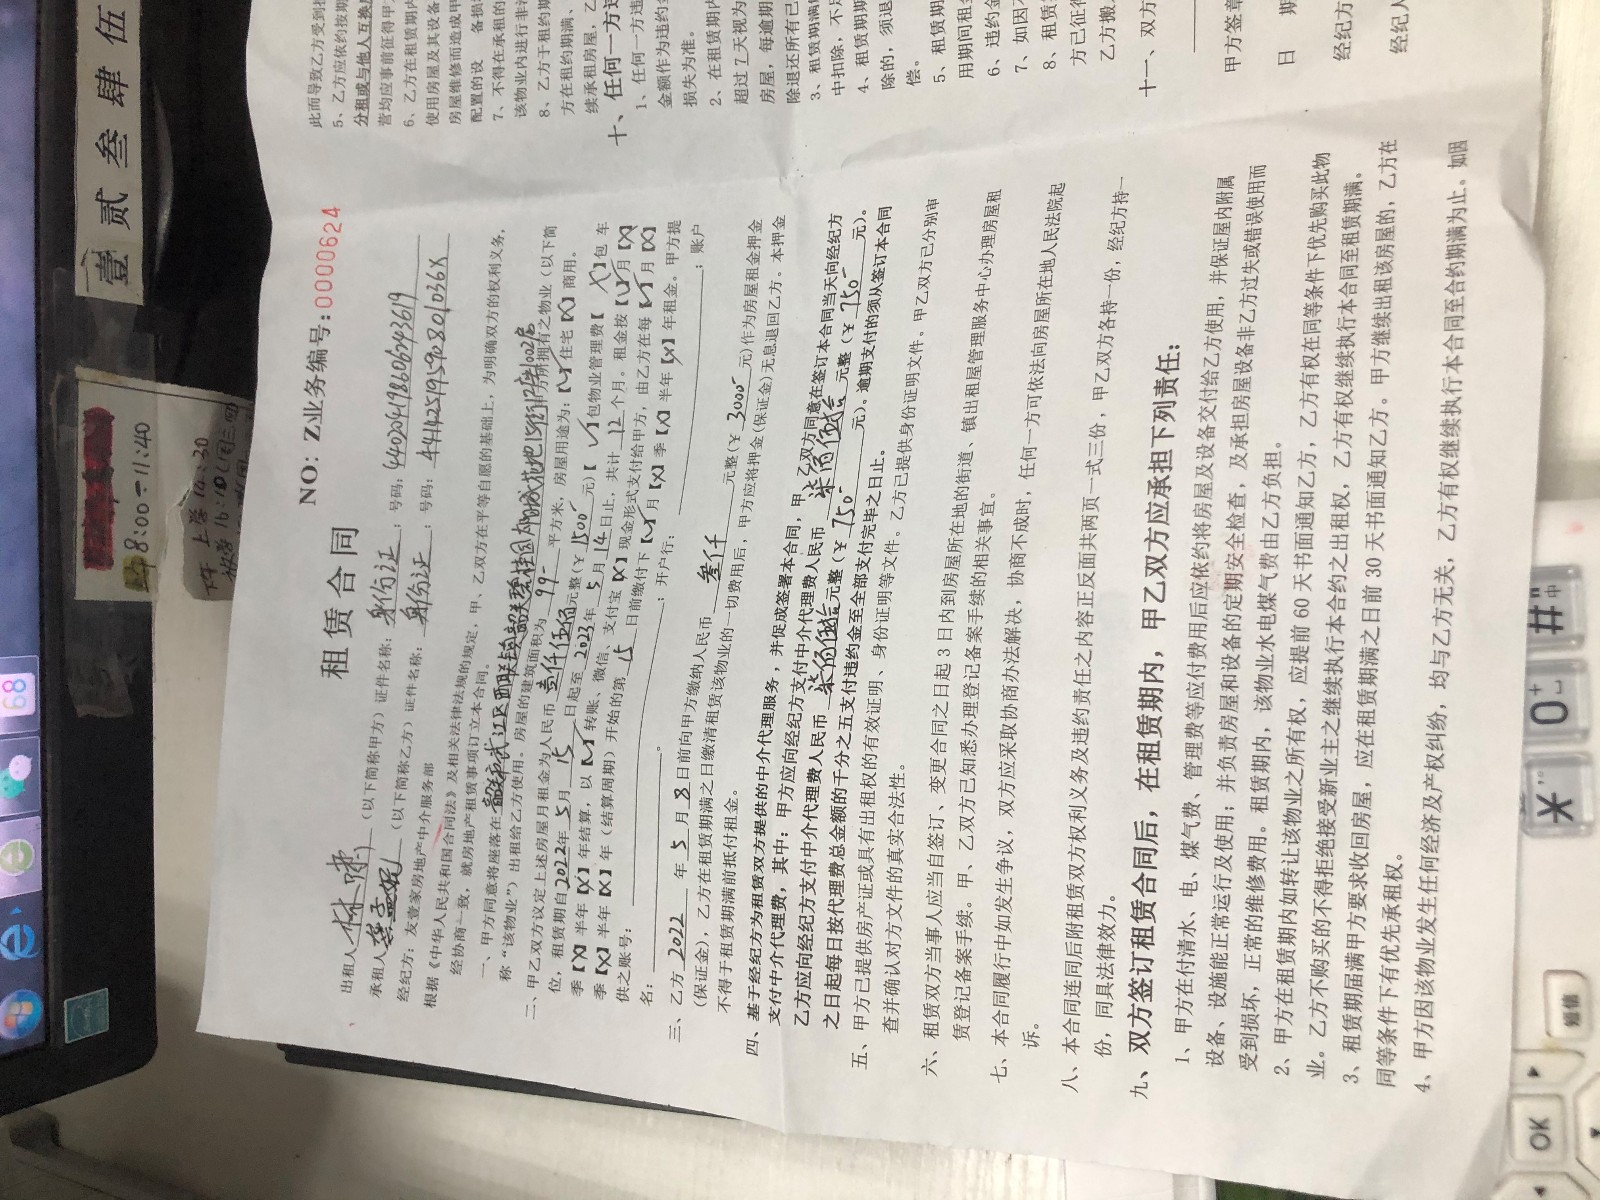 租赁合同
NO: Z业务编号:0000624
出租人 (以下简称甲方) 证件名称: 身份证 ; 号码: 440204198606243619
承租人 (以下简称乙方) 证件名称: 身份证 ; 号码: 44142519590801036X
经纪方: 友壹家房地产中介服务部
根据《中华人民共和国合同法》及相关法律法规的规定, 甲、乙双方在平等自愿的基础上, 为明确双方的权利义务,
经协商一致, 就房地产租赁事项订立本合同。
一、甲方同意将座落在 韶关市武江区西联镇 甲方所拥有之物业 (以下简
称“该物业”) 出租给乙方使用。房屋的建筑面积为 99 平方米, 房屋用途为: 【✓】住宅【X】商用。
二、甲乙双方议定上述房屋月租金为人民币 壹仟伍佰 元整(¥ 1500 元)【✓】包物业管理费【X】包 车
位, 租赁期自2022年 5月 15 日起至 2023年 5 月 14日止, 共计 12 个月。租金按【✓】月【X】
季【X】半年【X】年结算, 以【✓】转账、微信、支付宝【X】现金形式支付给甲方, 由乙方在每【✓】月【X】
季【X】半年【X】年 (结算周期) 开始的第 15 日前缴付下【✓】月【X】季【X】半年【X】年租金。甲方提
供之账号: ; 开户行: ; 账户
名: 。
三、乙方 2022 年 5 月 8 日前向甲方缴纳人民币 叁仟 元整(¥ 3000 元)作为房屋租金押金
(保证金), 乙方在租赁期满之日缴清租赁该物业的一切费用后, 甲方应将押金(保证金)无息退回乙方。本押金
不得于租赁期满前抵付租金。
四、基于经纪方为租赁双方提供的中介代理服务, 并促成签署本合同, 甲、乙双方同意在签订本合同当天向经纪方
支付中介代理费, 其中: 甲方应向经纪方支付中介代理费人民币 柒佰伍拾 元整 (¥ 750 元)。
乙方应向经纪方支付中介代理费人民币 柒佰伍拾 元整 (¥ 750 元)。逾期支付的须从签订本合同
之日起每日按代理费总金额的千分之五支付违约金至全部支付完毕之日止。
五、甲方已提供房产证或具有出租权的有效证明、身份证明等文件。乙方已提供身份证明文件。甲乙双方已分别审
查并确认对方文件的真实合法性。
六、租赁双方当事人应当自签订、变更合同之日起 3 日内到房屋所在地的街道、镇出租屋管理服务中心办理房屋租
赁登记备案手续。甲、乙双方已知悉办理登记备案手续的相关事宜。
七、本合同履行中如发生争议, 双方应采取协商办法解决, 协商不成时, 任何一方可依法向房屋所在地人民法院起
诉。
八、本合同连同后附租赁双方权利义务及违约责任之内容正反面共两页一式三份, 甲乙双方各持一份, 经纪方持一
份, 同具法律效力。
九、双方签订租赁合同后, 在租赁期内, 甲乙双方应承担下列责任:
1、甲方在付清水、电、煤气费、管理费等应付费用后应依约将房屋及设备交付给乙方使用, 并保证屋内附属
设备、设施能正常运行及使用; 并负责房屋和设备的定期安全检查, 及承担房屋设备非乙方过失或错误使用而
受到损坏, 正常的维修费用。租赁期内, 该物业水电煤气费由乙方负担。
2、甲方在租赁期内如转让该物业之所有权, 应提前 60 天书面通知乙方, 乙方有权在同等条件下优先购买此物
业。乙方不购买的不得拒绝接受新业主之继续执行本合约之出租权, 乙方有权继续执行本合同至租赁期满。
3、租赁期届满甲方要求收回房屋, 应在租赁期满之日前 30 天书面通知乙方。甲方继续出租该房屋的, 乙方在
同等条件下有优先承租权。
4、甲方因该物业发生任何经济及产权纠纷, 均与乙方无关, 乙方有权继续执行本合同至合约期满为止。如因
此而导致乙方受到
5、乙方应依约按期
分租或与他人互换
营均应事前征得甲
6、乙方在租赁期内
使用房屋及其设备
房屋维修而造成甲
配置的设 备损
7、不得在承租的
该物业内进行非
8、乙方于租约期
方在租约期满、
续承租房屋, 乙
十、任何一方
1、任何一方违
金额作为违约
损失为准。
2、在租赁期内
超过 7 天视为
房屋, 每逾期
除退还所有已
3、租赁期满
中扣除, 不
4、租赁期
除的, 须退
偿。
5、租赁期
用期间租金
6、违约金
7、如因
8、租赁
方已征得
乙方搬入
十一、双方
甲方签章
日 期
经纪方
经纪人
壹 贰 叁 肆 伍
8:00-11:40
下午 上学 14:30
68
OK
*
0+
#中
短信